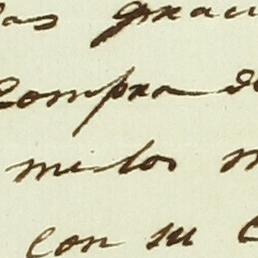 las graci
compra de
mulos m
con su